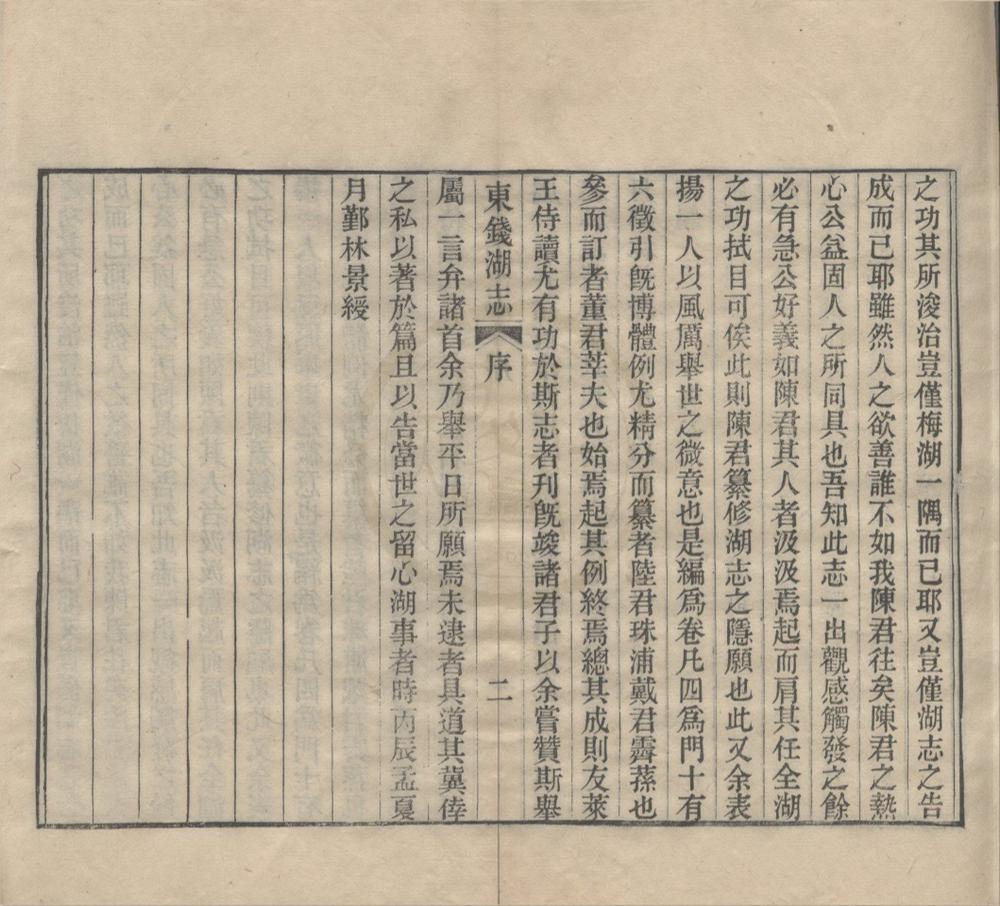 之功其所浚治豈僅梅湖一隅而已耶又豈僅湖志之告
成而已耶雖然人之欲善誰不如我陳君往矣陳君之熱
心公益固人之所同具也吾知此志一出觀感觸發之餘
必有急公好義如陳君其人者汲汲焉起而肩其任全湖
之功拭目可俟此則陳君纂修湖志之隱願也此又余表
揚一人以風厲舉世之微意也是編爲卷凡四爲門十有
六徵引旣博體例尤精分而纂者陸君珠浦戴君霽蓀也
參而訂者董君莘夫也始焉起其例終焉總其成則友萊
王侍讀尤有功於斯志者刊旣竣諸君子以余嘗贊斯舉
東錢湖志 序 二
屬一言弁諸首余乃舉平日所願焉未逮者具道其冀倖
之私以著於篇且以告當世之留心湖事者時丙辰孟夏
月鄞林景綬